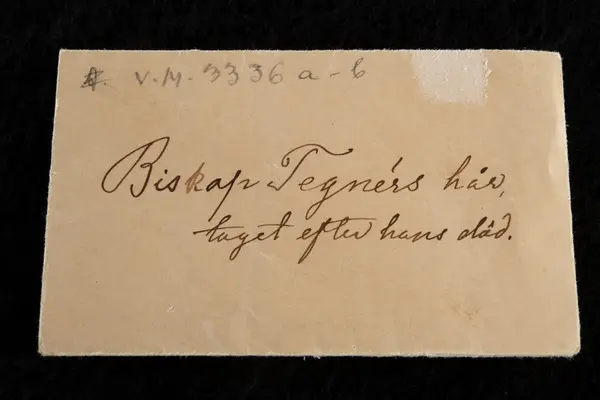 V.M. 3336 a-b
Biskop Tegnérs hår,
taget efter hans död.